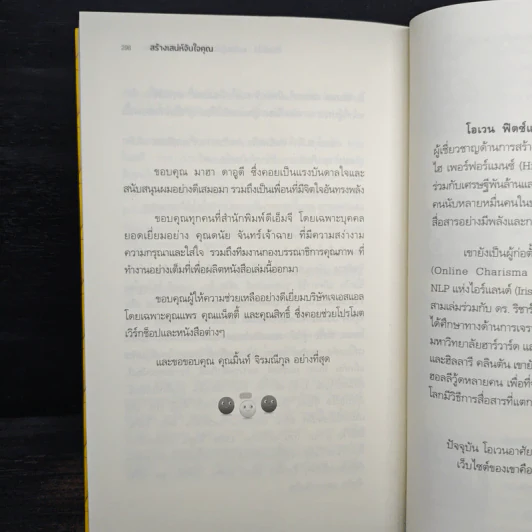 สร้างเสน่ห์จับใจคุณ
ขอบคุณ มาฮา ดาอูดี ซึ่งคอยเป็นแรงบันดาลใจและ
สนับสนุนผมอย่างดีเสมอมา รวมถึงเป็นเพื่อนที่มีจิตใจอันทรงพลัง
ขอบคุณทุกคนที่สำนักพิมพ์ดีเอ็มจี โดยเฉพาะบุคคล
ยอดเยี่ยมอย่าง คุณดนัย จันทร์เจ้าฉาย ที่มีความสง่างาม
ความกรุณาและใส่ใจ รวมถึงทีมงานกองบรรณาธิการคุณภาพ ที่
ทำงานอย่างเต็มที่เพื่อผลิตหนังสือเล่มนี้ออกมา
ขอบคุณผู้ให้ความช่วยเหลืออย่างดีเยี่ยมบริษัทเจเอสแอล
โดยเฉพาะคุณแพร คุณแน็ตตี้ และคุณสิทธิ์ ซึ่งคอยช่วยโปรโมต
เวิร์กช็อปและหนังสือต่างๆ
และขอขอบคุณ คุณมิ้นท์ จิรมณีกุล อย่างที่สุด
โอเวน ฟิตซ์
ผู้เชี่ยวชาญด้านการสร้า
ไฮ เพอร์ฟอร์แมนซ์ (Hi
ร่วมกับเศรษฐีพันล้านและ
คนนับหลายหมื่นคนใน
สื่อสารอย่างมีพลังและก
เขายังเป็นผู้ก่อตั้
(Online Charisma
NLP แห่งไอร์แลนด์ (Iris
สามเล่มร่วมกับ ดร. ริชาร์
ได้ศึกษาทางด้านการเจร
มหาวิทยาลัยฮาร์วาร์ด แล
และฮิลลารี คลินตัน เขายั
ฮอลลีวู้ดหลายคน เพื่อที่
โลกมีวิธีการสื่อสารที่แตก
ปัจจุบัน โอเวนอาศัย
เว็บไซต์ของเขาคือ